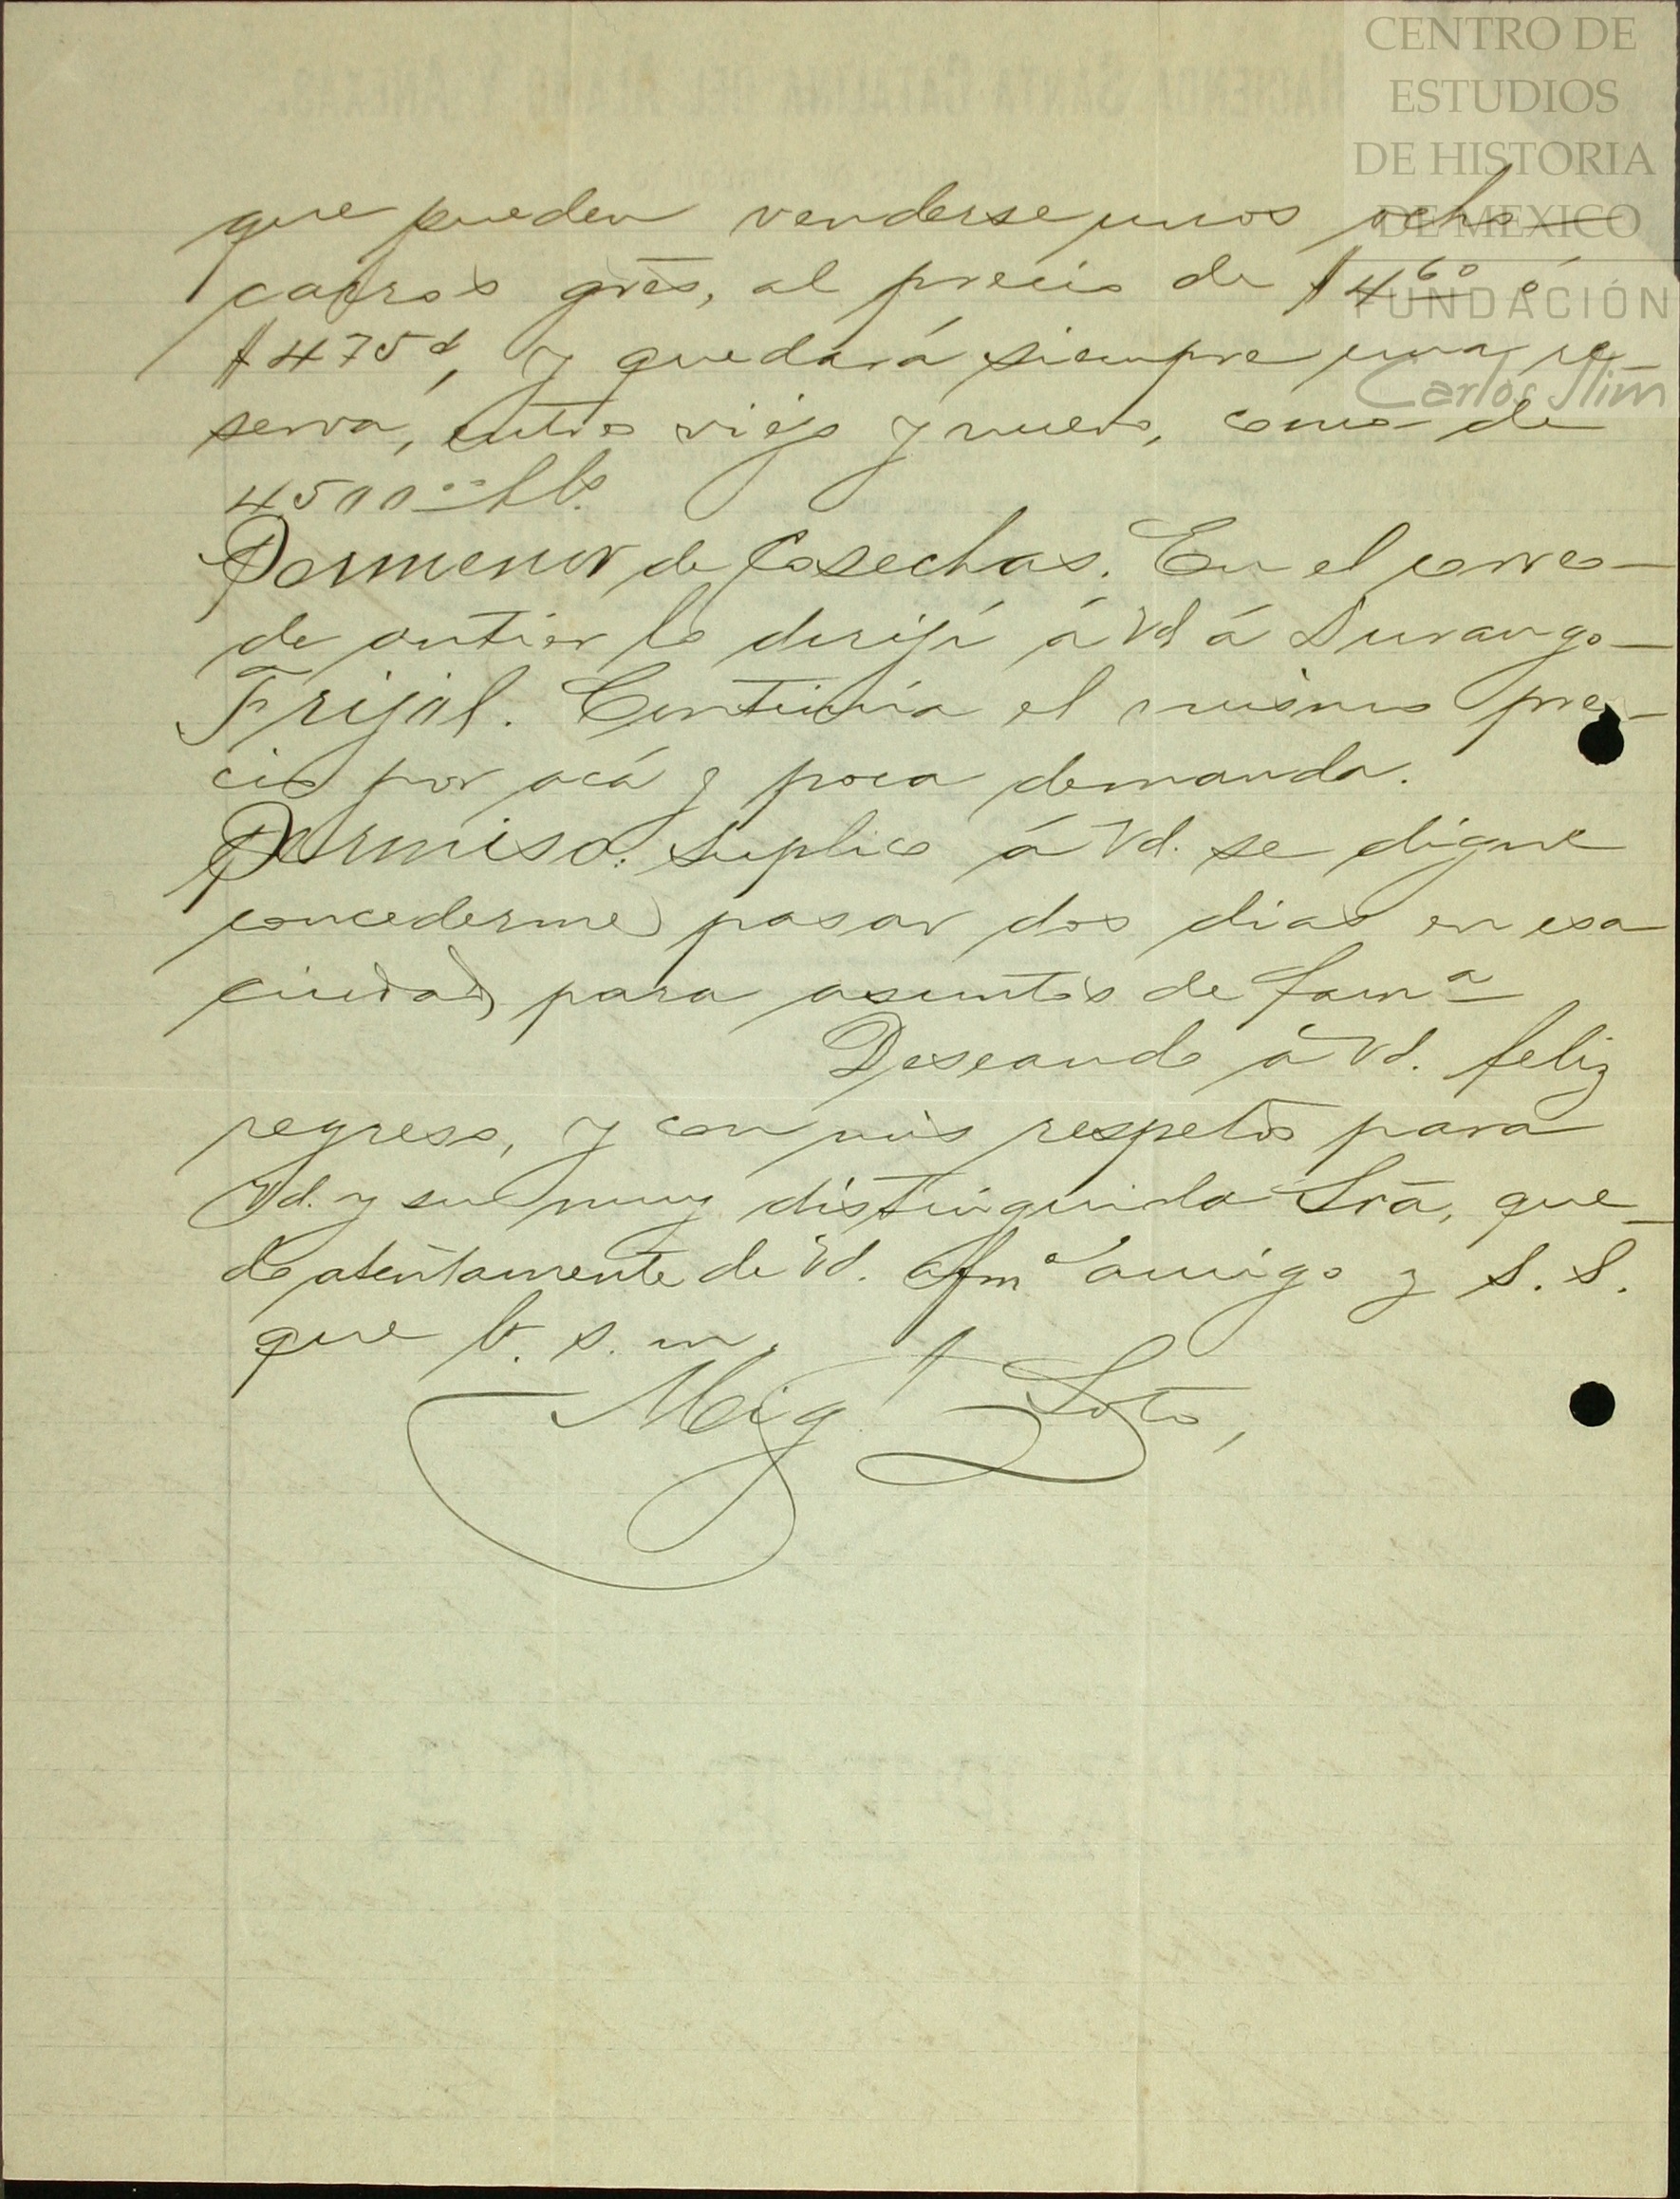 CENTRO DE
ESTUDIOS
DE HISTORIA
DE MEXICO
FUNDACIÓN
Carlos Slim
HACIENDA SANTA CATALINA DEL ALAMO Y ANEXAS.
que pueden venderse unos ocho
carros grẽs, al precio de $4 60 ó
$4 75 ¢, y quedará siempre una re-
serva, entre viejo y nuevo, como de
4500 00 Hls.
Pormenor de Cosechas. En el correo
de antier lo dirijí á Vd á Durango-
Frijol. Continúa el mismo pre-
cio por acá y poca demanda.
Permiso: Suplico á Vd. se digne
concederme pasar dos dias en esa
ciudad, para asuntos de fama
Deseando á Vd. feliz
regreso, y con mis respetos para
Vd. y su muy distinguida Srã, que-
do atentamente de Vd. afmo amigo y S. S.
que b. s. m.
Migl Soto,